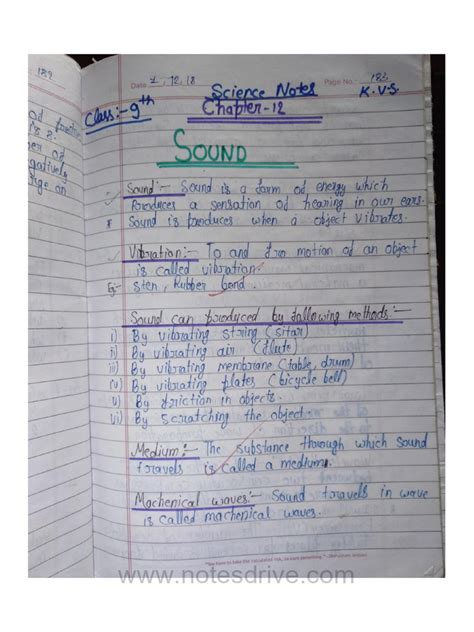 189
Date 7.12.18
Page No. 183
Science Notes
K.V.S.
Class:- 9th
Chapter-12
SOUND
Sound:- Sound is a form of energy which
Produces a sensation of hearing in our ears.
* Sound is produces when a object vibrates.
Vibration:- To and fro motion of an object
is called vibration.
Eg:- sten, Rubber band.
Sound can produced by following methods:-
i) By vibrating string (sitar)
ii) By vibrating air (flute)
iii) By vibrating membrane (table, drum)
iv) By vibrating plates (bicycle bell)
v) By friction in objects.
vi) By scratching the object.
Medium:- The substance through which sound
travels is called a medium.
Machenical waves:- Sound travels in wave
is called machenical waves.
www.notesdrive.com